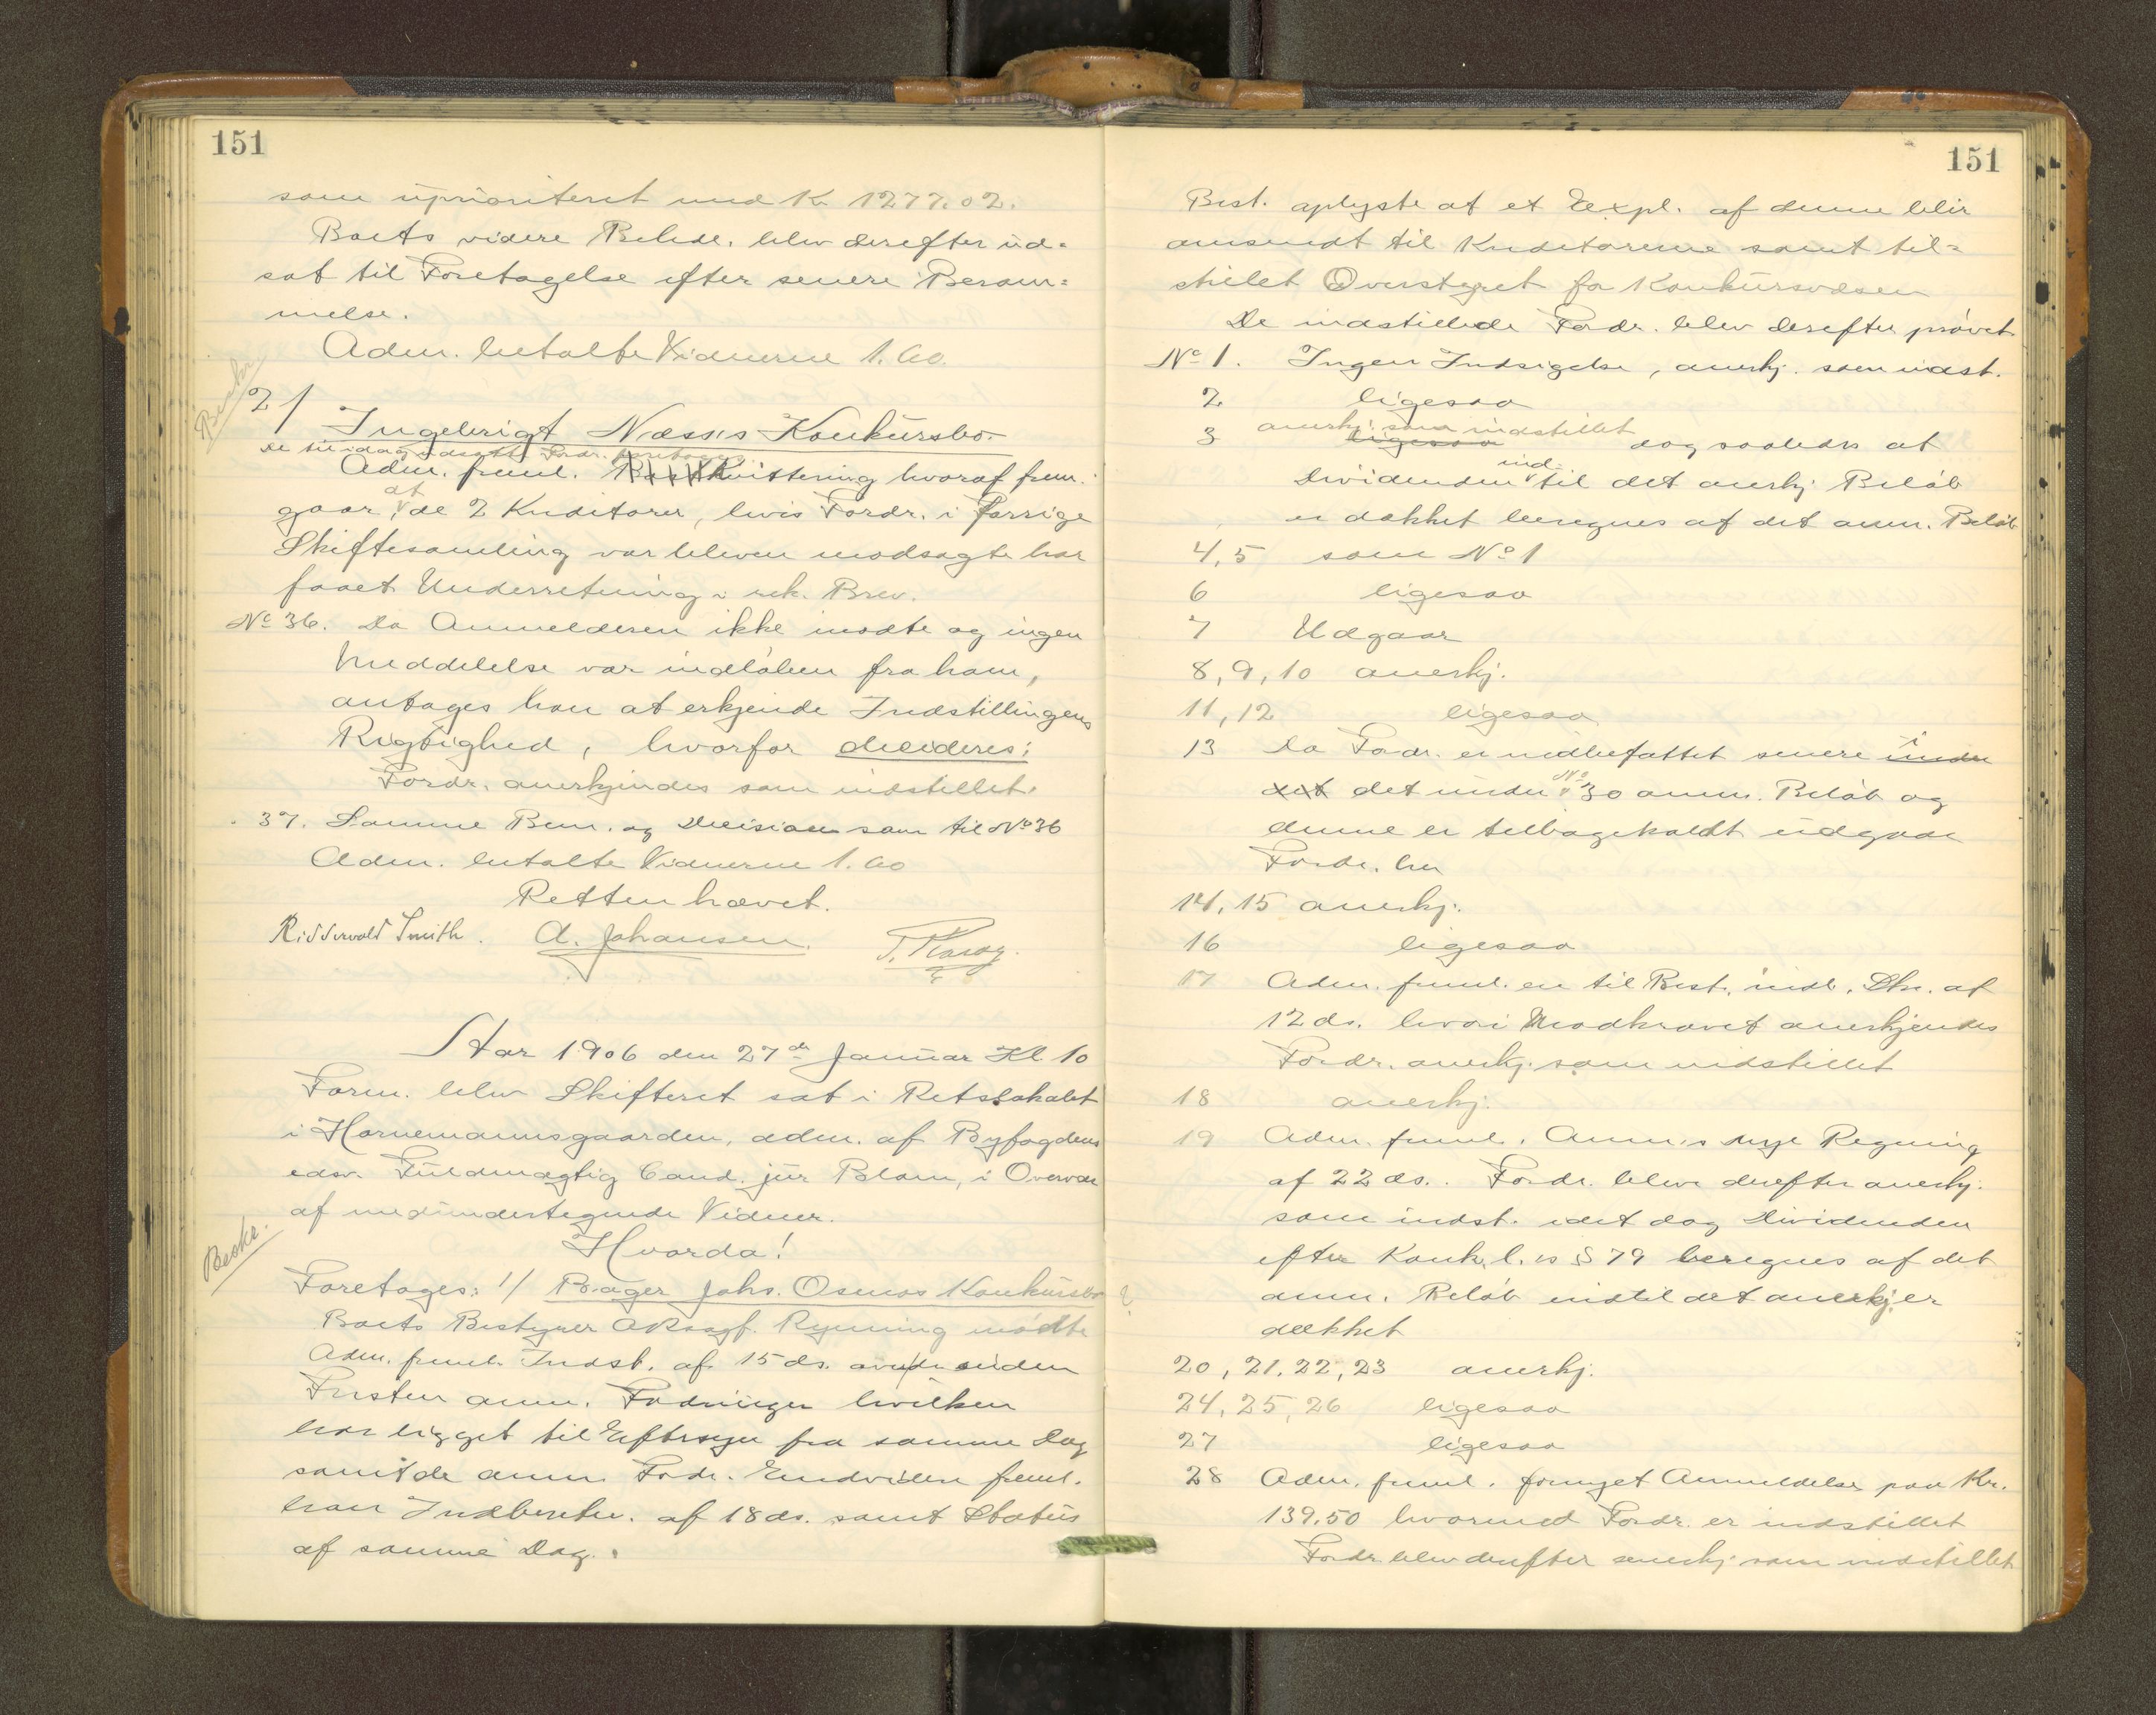 151
som uprioriteret med Kr 1277.02.
Boets videre Behdl. blev derefter ud=
sat til Foretagelse efter senere Beram=
melse.
Adm. betalte Vidnerne 1.60.
2/
Ingebrigt Næss's Konkursbo.
Adm. freml. Kvittering hvoraf frem
gaar, at de 2 Kreditorer, hvis Fordr. i forrige
Skiftesamling var bleven modsagte har
faaet Underretning i rek. Brev.
No 36. Da Anmelderen ikke mødte og ingen
Meddelelse var indløben fra ham,
antages han at erkjende Indstillingens
Rigtighed, hvorfor decideres:
Fordr. anerkjendes som indstillet.
37. Samme Bem. og Decision som til No 36
Adm. betalte Vidnerne 1.60
Retten hævet.
Ridderwold Smith. A. Johansen.
Aar 1906 den 27de Januar Kl. 10
Form. blev Skifteret sat i Retslokalet
i Hornemannsgaarden, adm. af Byfogdens
edsv. Fuldmægtig Cand. jur Blom, i Overvær
af medundertegnede Vidner.
Hvorda!
Beskr.
Foretages: 1/ Bager Johs. Osmos Konkursbo
Boets Bestyrer Rynning mødte
Adm. freml. Indst. af 15 ds. over de inden
Fristen anm. Fodringer hvilken
har ligget til Eftersyn fra samme Dag
samt de anm. Fodr. Endvidere freml.
han Indberetn. af 18 ds. samt Status
af samme Dag.
151
Best. oplyste at et Expl. af denne blir
omsendt til Kreditorerne samt til=
stillet Overstyret for Konkursvæsen
De indstillede Fordr. blev derefter prøvet
No 1. Ingen Indsigelse, anerkj. som indst.
2 ligesaa
3 anerkj. som indstillet ligesaa dog saaledes at
Dividenden indtil det anerkj Beløb
er dækket beregnes af det anm. Beløb
4, 5 som No 1
6 ligesaa
7 Udgaar
8, 9, 10 anerkj.
11, 12 ligesaa
13 Da Fordr. er indbefattet senere i under
det det under No 30 anm. Beløb og
denne er tilbagekaldt udgaar
Fordr. her
14, 15 anerkj.
16 ligesaa
17 Adm. freml. en til Best. indl. Skr. af
12 ds. hvori Modkravet anerkjendes
Fordr. anerkj. som indstillet
18 anerkj.
19 Adm. freml. Anm.s nye Regning
af 22 ds. Fordr. blev derefter anerkj.
som indst. idet dog Dividenden
efter Konk.l.s § 79 beregnes af det
anm. Beløb indtil det anerkj er
dækket
20, 21, 22, 23 anerkj.
24, 25, 26 ligesaa
27 ligesaa
28 Adm. freml. fornyet Anmeldelse paa Kr.
139.50 hvormed Fordr. er indstillet
Fordr. blev derefter anerkj. som indstillet